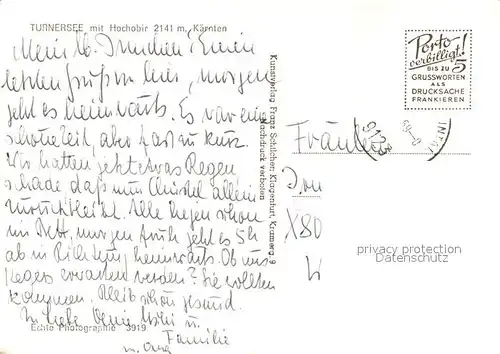 TURNERSEE mit Hochobir 2141 m, Kärnten
Meine lb. ! Einen
letzten Gruß von hier, morgen
geht es heimwärts. Es war eine
schöne Zeit, aber fast zu kurz.
Wir hatten jetzt etwas Regen
schade daß nun Christel allein
zurückbleibt. Alle liegen schon
im Bett, morgen früh geht es 5h
ab in Richtung heimwärts. Ob uns
erwarten werden? Sie wollten
kommen. Bleib schön gesund.
In Liebe Deine u.
Familie
Echte Photographie 3919
Kunstverlag Franz Schilcher, Klagenfurt, Kramerg. 9
Nachdruck verboten
Porto
verbilligt!
BIS ZU 5
GRUSSWORTEN
ALS
DRUCKSACHE
FRANKIEREN
9123
Fräulein
X80
privacy protection
Datenschutz